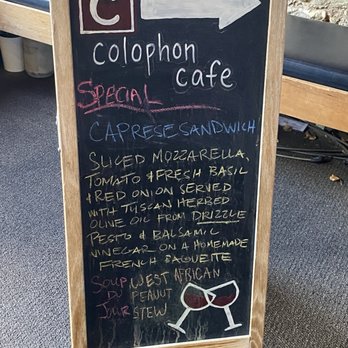 C
colophon
cafe
SPECIAL
CAPRESE SANDWICH
SLICED MOZZARELLA,
TOMATO & FRESH BASIL
& RED ONION SERVED
WITH TUSCAN HERBED
OLIVE OIL FROM DRIZZLE
PESTO & BALSAMIC
VINEGAR ON A HOMEMADE
FRENCH BAGUETTE
SOUP WEST AFRICAN
DU PEANUT
JOUR STEW